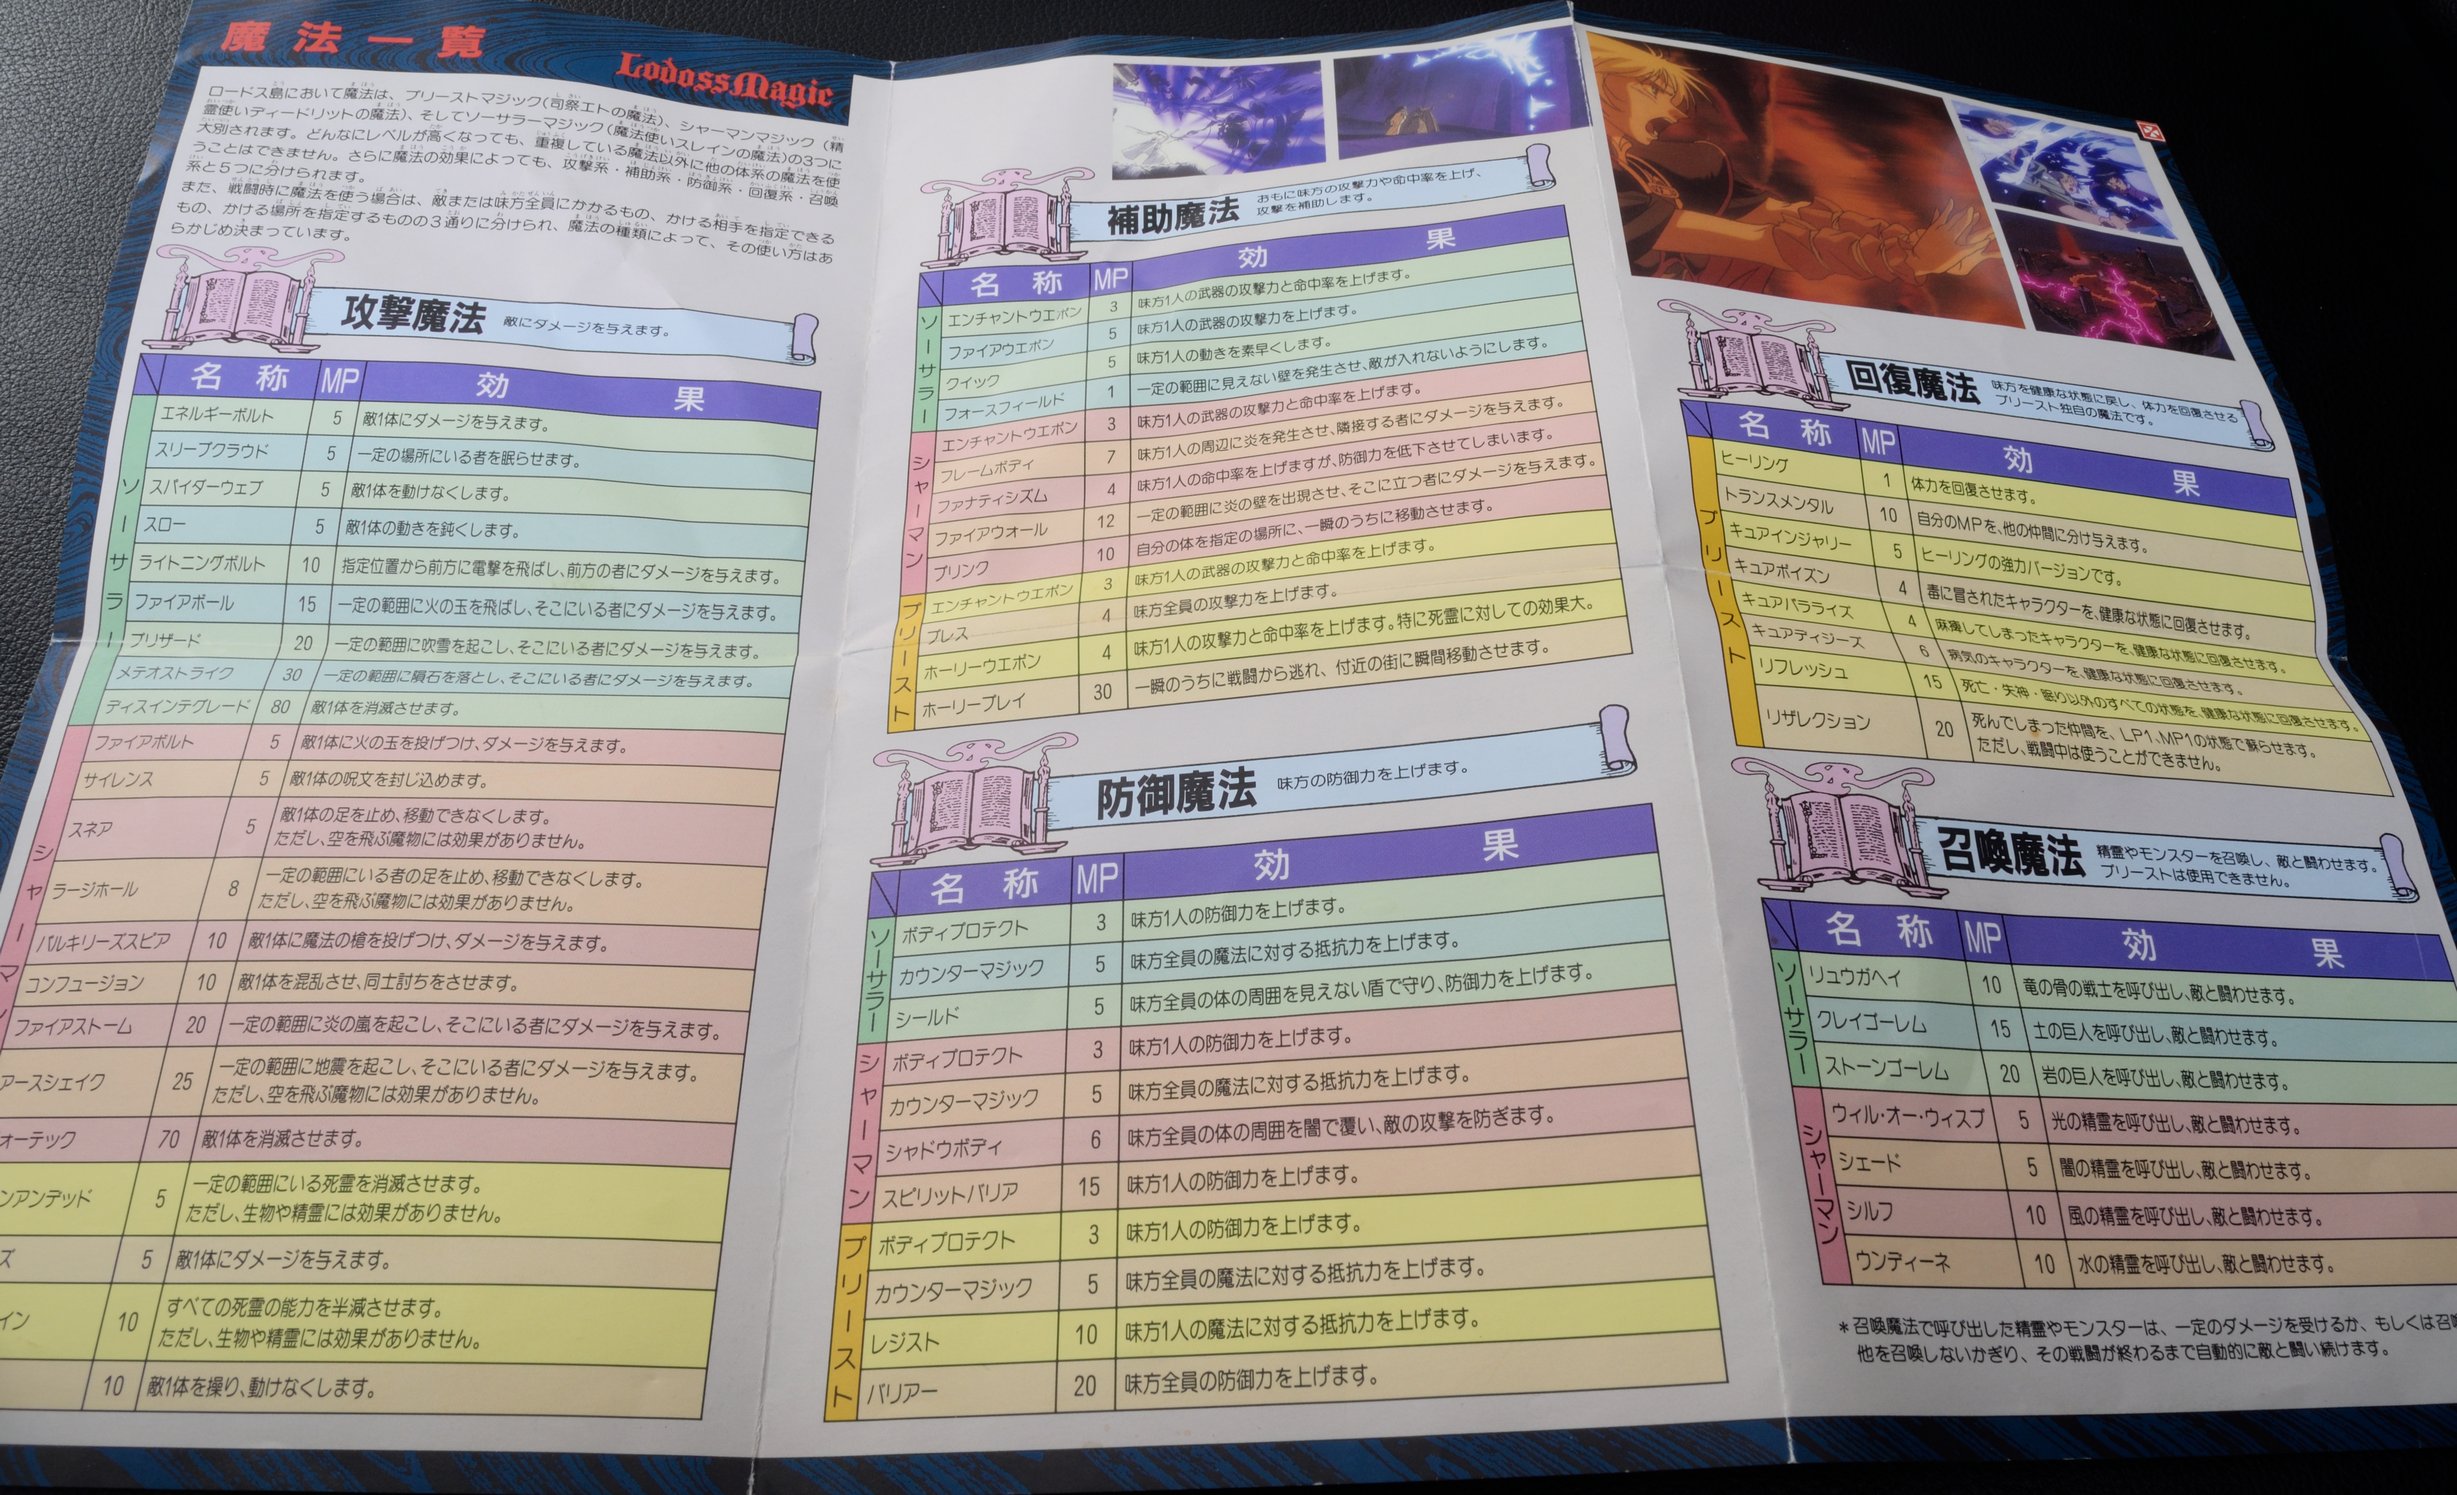 魔法一覧
LodossMagic
ロードス島において魔法は、プリーストマジック(司祭エトの魔法)、シャーマンマジック(精
霊使いディードリットの魔法)、そしてソーサラーマジック(魔法使いスレインの魔法)の3つに
大別されます。どんなにレベルが高くなっても、重複している魔法以外に他の体系の魔法を使
うことはできません。さらに魔法の効果によっても、攻撃系・補助系・防御系・回復系・召喚
系と5つに分けられます。
また、戦闘時に魔法を使う場合は、敵または味方全員にかかるもの、かける相手を指定できる
もの、かける場所を指定するものの3通りに分けられ、魔法の種類によって、その使い方はあ
らかじめ決まっています。
攻撃魔法 敵にダメージを与えます。
名称 MP 効果
ソーサラー
エネルギーボルト 5 敵1体にダメージを与えます。
スリープクラウド 5 一定の場所にいる者を眠らせます。
スパイダーウェブ 5 敵1体を動けなくします。
スロー 5 敵1体の動きを鈍くします。
ライトニングボルト 10 指定位置から前方に電撃を飛ばし、前方の者にダメージを与えます。
ファイアボール 15 一定の範囲に火の玉を飛ばし、そこにいる者にダメージを与えます。
ブリザード 20 一定の範囲に吹雪を起こし、そこにいる者にダメージを与えます。
メテオストライク 30 一定の範囲に隕石を落とし、そこにいる者にダメージを与えます。
ディスインテグレード 80 敵1体を消滅させます。
シャーマン
ファイアボルト 5 敵1体に火の玉を投げつけ、ダメージを与えます。
サイレンス 5 敵1体の呪文を封じ込めます。
スネア 5 敵1体の足を止め、移動できなくします。
ただし、空を飛ぶ魔物には効果がありません。
ラージホール 8 一定の範囲にいる者の足を止め、移動できなくします。
ただし、空を飛ぶ魔物には効果がありません。
バルキリーズスピア 10 敵1体に魔法の槍を投げつけ、ダメージを与えます。
コンフュージョン 10 敵1体を混乱させ、同士討ちをさせます。
ファイアストーム 20 一定の範囲に炎の嵐を起こし、そこにいる者にダメージを与えます。
アースシェイク 25 一定の範囲に地震を起こし、そこにいる者にダメージを与えます。
ただし、空を飛ぶ魔物には効果がありません。
ォーテック 70 敵1体を消滅させます。
ンアンデッド 5 一定の範囲にいる死霊を消滅させます。
ただし、生物や精霊には効果がありません。
ズ 5 敵1体にダメージを与えます。
イン 10 すべての死霊の能力を半減させます。
ただし、生物や精霊には効果がありません。
10 敵1体を操り、動けなくします。
補助魔法 おもに味方の攻撃力や命中率を上げ、
攻撃を補助します。
名称 MP 効果
ソーサラー
エンチャントウエポン 3 味方1人の武器の攻撃力と命中率を上げます。
ファイアウエポン 5 味方1人の武器の攻撃力を上げます。
クイック 5 味方1人の動きを素早くします。
フォースフィールド 1 一定の範囲に見えない壁を発生させ、敵が入れないようにします。
シャーマン
エンチャントウエポン 3 味方1人の武器の攻撃力と命中率を上げます。
フレームボディ 7 味方1人の周辺に炎を発生させ、隣接する者にダメージを与えます。
ファナティシズム 4 味方1人の命中率を上げますが、防御力を低下させてしまいます。
ファイアウォール 12 一定の範囲に炎の壁を出現させ、そこに立つ者にダメージを与えます。
ブリンク 10 自分の体を指定の場所に、一瞬のうちに移動させます。
プリースト
エンチャントウエポン 3 味方1人の武器の攻撃力と命中率を上げます。
ブレス 4 味方全員の攻撃力を上げます。
ホーリーウエポン 4 味方1人の攻撃力と命中率を上げます。特に死霊に対しての効果大。
ホーリープレイ 30 一瞬のうちに戦闘から逃れ、付近の街に瞬間移動させます。
防御魔法 味方の防御力を上げます。
名称 MP 効果
ソーサラー
ボディプロテクト 3 味方1人の防御力を上げます。
カウンターマジック 5 味方全員の魔法に対する抵抗力を上げます。
シールド 5 味方全員の体の周囲を見えない盾で守り、防御力を上げます。
シャーマン
ボディプロテクト 3 味方1人の防御力を上げます。
カウンターマジック 5 味方全員の魔法に対する抵抗力を上げます。
シャドウボディ 6 味方全員の体の周囲を闇で覆い、敵の攻撃を防ぎます。
スピリットバリア 15 味方1人の防御力を上げます。
プリースト
ボディプロテクト 3 味方1人の防御力を上げます。
カウンターマジック 5 味方全員の魔法に対する抵抗力を上げます。
レジスト 10 味方1人の魔法に対する抵抗力を上げます。
バリアー 20 味方全員の防御力を上げます。
回復魔法 味方を健康な状態に戻し、体力を回復させる
プリースト独自の魔法です。
名称 MP 効果
プリースト
ヒーリング 1 体力を回復させます。
トランスメンタル 10 自分のMPを、他の仲間に分け与えます。
キュアインジャリー 5 ヒーリングの強力バージョンです。
キュアポイズン 4 毒に冒されたキャラクターを、健康な状態に回復させます。
キュアパラライズ 4 麻痺してしまったキャラクターを、健康な状態に回復させます。
キュアディジーズ 6 病気のキャラクターを、健康な状態に回復させます。
リフレッシュ 15 死亡・失神・眠り以外のすべての状態を、健康な状態に回復させます。
リザレクション 20 死んでしまった仲間を、LP1、MP1の状態で蘇らせます。
ただし、戦闘中は使うことができません。
召喚魔法 精霊やモンスターを召喚し、敵と闘わせます。
プリーストは使用できません。
名称 MP 効果
ソーサラー
リュウガヘイ 10 竜の骨の戦士を呼び出し、敵と闘わせます。
クレイゴーレム 15 土の巨人を呼び出し、敵と闘わせます。
ストーンゴーレム 20 岩の巨人を呼び出し、敵と闘わせます。
シャーマン
ウィル・オー・ウィスプ 5 光の精霊を呼び出し、敵と闘わせます。
シェード 5 闇の精霊を呼び出し、敵と闘わせます。
シルフ 10 風の精霊を呼び出し、敵と闘わせます。
ウンディーネ 10 水の精霊を呼び出し、敵と闘わせます。
*召喚魔法で呼び出した精霊やモンスターは、一定のダメージを受けるか、もしくは召喚
他を召喚しないかぎり、その戦闘が終わるまで自動的に敵と闘い続けます。